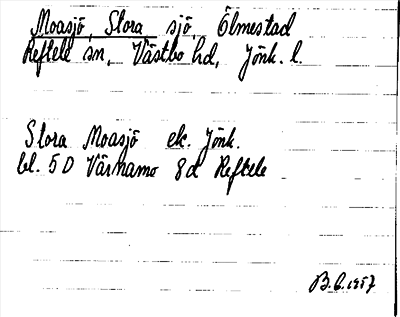 Moasjö, Stora sjö, Ölmestad
Reftele sn, Västbo hd, Jönk. l.
Stora Moasjö ek. Jönk.
bl. 5D Värnamo 8d Reftele
B.C. 1957